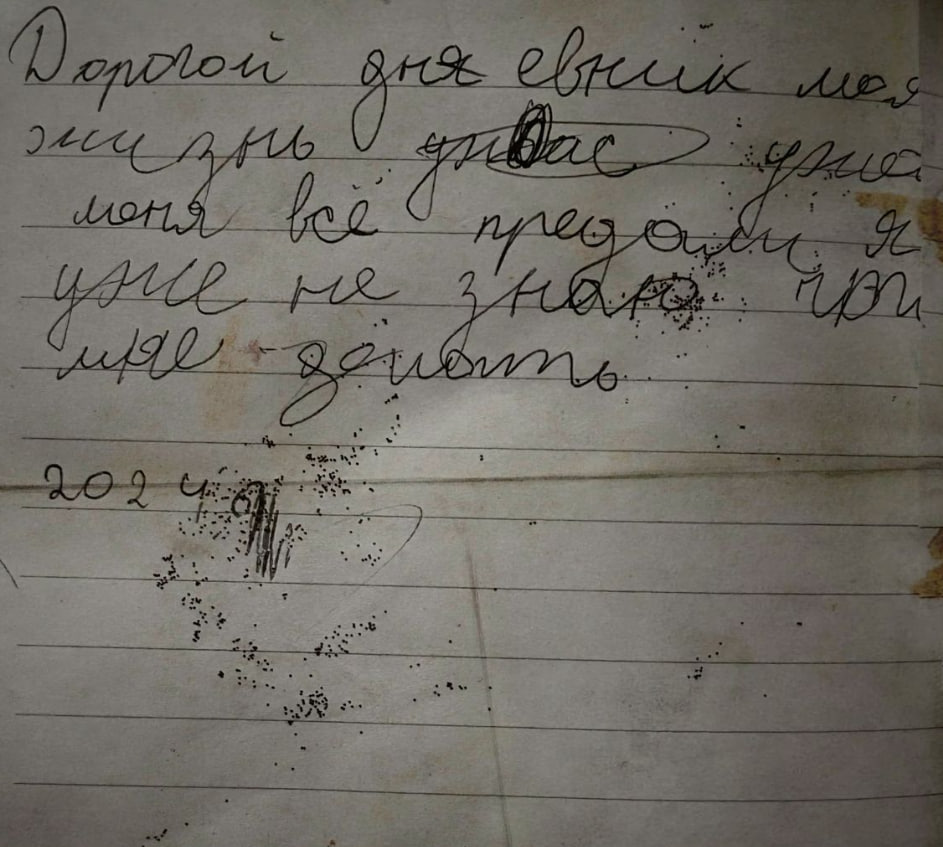 Дорогой дня евник моя
жизнь ужас уже
меня всё предали я
уже не знаю что
мне делать
2024